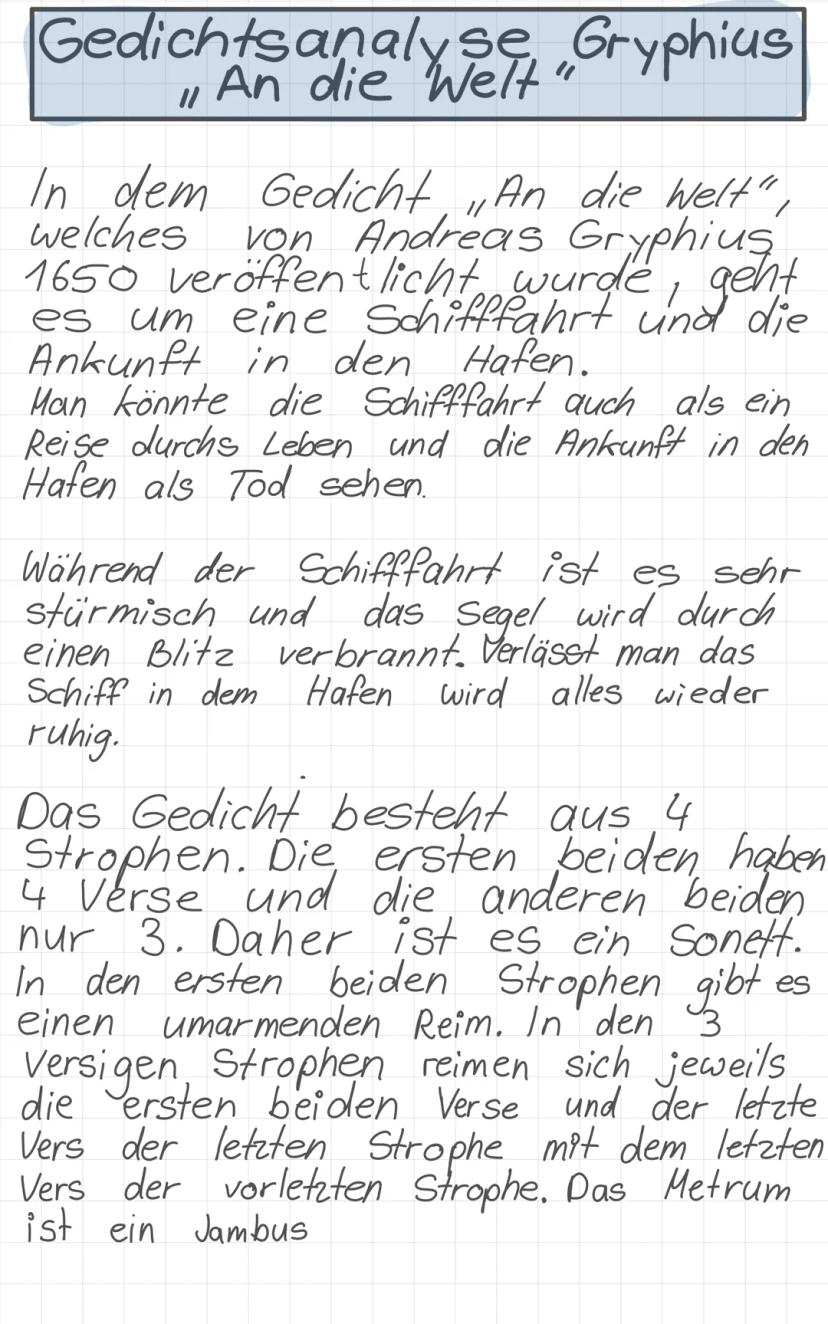 Gedichtsanalyse Gryphius
„An die Welt"
In dem Gedicht „An die Welt",
welches von Andreas Gryphius
1650 veröffentlicht wurde, geht
es um eine Schifffahrt und die
Ankunft in den Hafen.
Man könnte die Schifffahrt auch als ein
Reise durchs Leben und die Ankunft in den
Hafen als Tod sehen.
Während der Schifffahrt ist es sehr
stürmisch und das Segel wird durch
einen Blitz verbrannt. Verlässt man das
Schiff in dem Hafen wird alles wieder
ruhig.
Das Gedicht besteht aus 4
Strophen. Die ersten beiden haben
4 Verse und die anderen beiden
nur 3. Daher ist es ein Sonett.
In den ersten beiden Strophen gibt es
einen umarmenden Reim. In den 3
Versigen Strophen reimen sich jeweils
die ersten beiden Verse und der letzte
Vers der letzten Strophe mit dem letzten
Vers der vorletzten Strophe. Das Metrum
ist ein Jambus